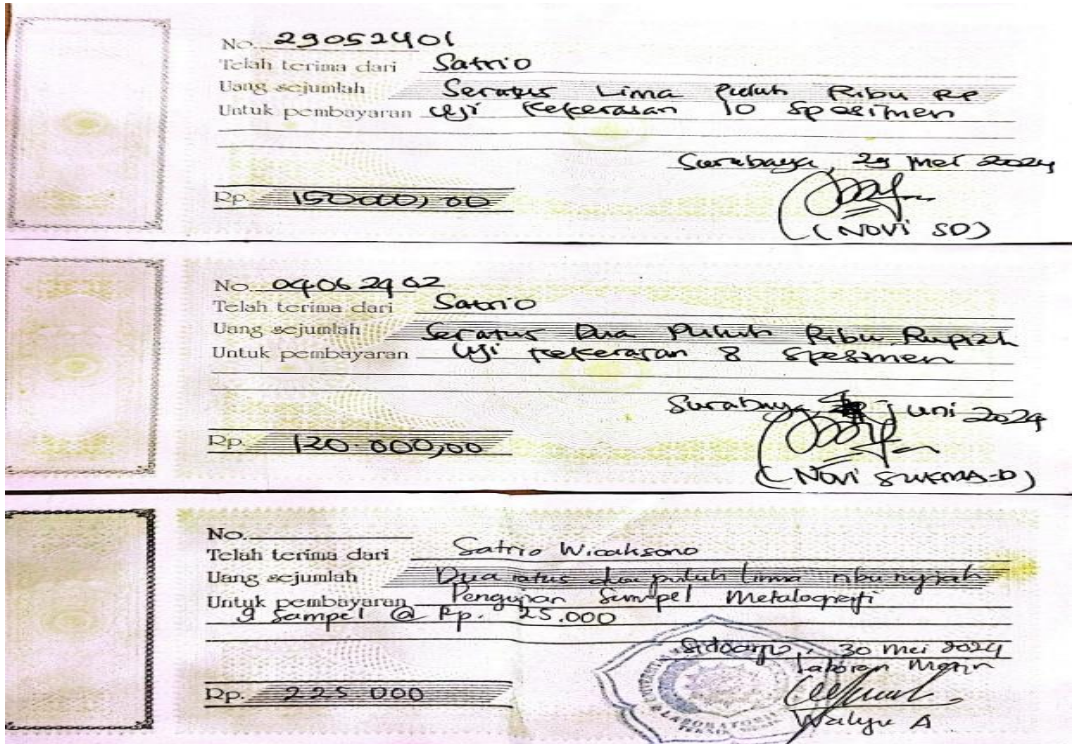 No. 29052401
Telah terima dari Satrio
Uang sejumlah Seratus Lima Puluh Ribu Rp
Untuk pembayaran Uji Kekerasan 10 Spesimen
Surabaya, 29 Mei 2024
Rp. 150000,00
(NOVI SD)
No. 04062402
Telah terima dari Satrio
Uang sejumlah Seratus Dua Puluh Ribu Rupiah
Untuk pembayaran Uji Kekerasan 8 Spesimen
Surabaya Juni 2024
Rp. 120.000,00
(NOVI SUKMA-D)
No.
Telah terima dari Satrio Wicaksono
Uang sejumlah Dua ratus dua puluh lima ribu rupiah
Untuk pembayaran Pengujian Sampel Metalografi
9 Sampel @ Rp. 25.000
Sidoarjo, 30 mei 2024
Laboran Mesin
Rp. 225.000
LABORATORIUM
Wahyu A